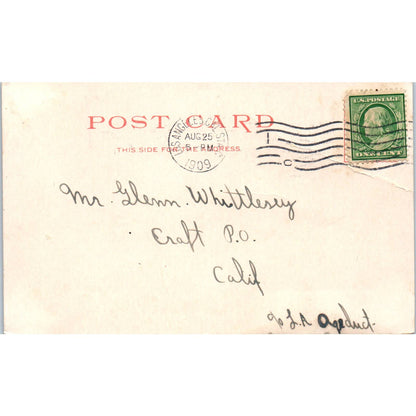 POST CARD
THIS SIDE FOR THE ADDRESS.
LOS ANGELES, CAL.
AUG 25
5 PM
1909
U.S. POSTAGE
ONE CENT
Mr. Glenn Whittlesey
Craft P.O.
Calif
c/o L.A Aqeduct